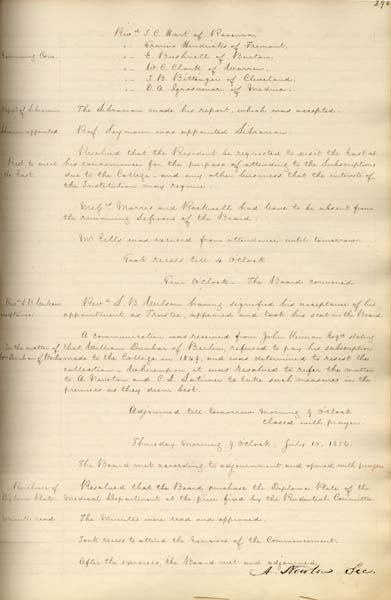 294
Rev.d J. C. Hart of Ravenna
" Francis Hendricks of Fremont,
Examining Com. " E. Bushnell of Burton,
" W. C. Clark of Warren
" J. B. Bittinger of Cleveland,
" D. A. Grosvenor of Medina.
Report of Librarian The Librarian made his report, which was accepted.
Librarian appointed Prof Seymour was appointed Librarian.
Resolved that the President be requested to visit the East at
Prest. to visit his convenience for the purpose of attending to the Subscriptions
the East. due to the College and any other business that the interests of
the Institution may require.
Messrs Morris and Rockwell had leave to be absent from
the remaining Sessions of the Board.
Mr Eells was excused from attendance until tomorrow.
Took recess till 4 O'clock
Four O'clock. The Board convened
Rev.d S. B. Wilson Rev.d S. B. Wilson having signified his acceptance of his
acceptance. appointment as Trustee, appeared and took his seat in the Board
A communication was received from John Esqr. stating
In the matter of that William Dunbar of Berlin, refused to pay his subscription
Wm Dunbar of Berlin made to the College in 1849, and was determined to resist the
collection - whereupon it was resolved to refer the matter
to A Newton and C. L. Latimer to take such measures in the
premises as they deem best.
Adjourned till tomorrow morning 9 O'clock
closed with prayer.
Thursday Morning 9 O'clock, July 10, 1856.
The Board met according to adjournment and opened with prayer
Purchase of Resolved that the Board purchase the Diploma Plate of the
Diploma Plate. Medical Department at the price fixed by the Prudential Committee
Minutes read. The Minutes were read and approved.
Took recess to attend the Exercises of the Commencement.
After the exercises, the Board met and adjourned
A. Newton Sec.